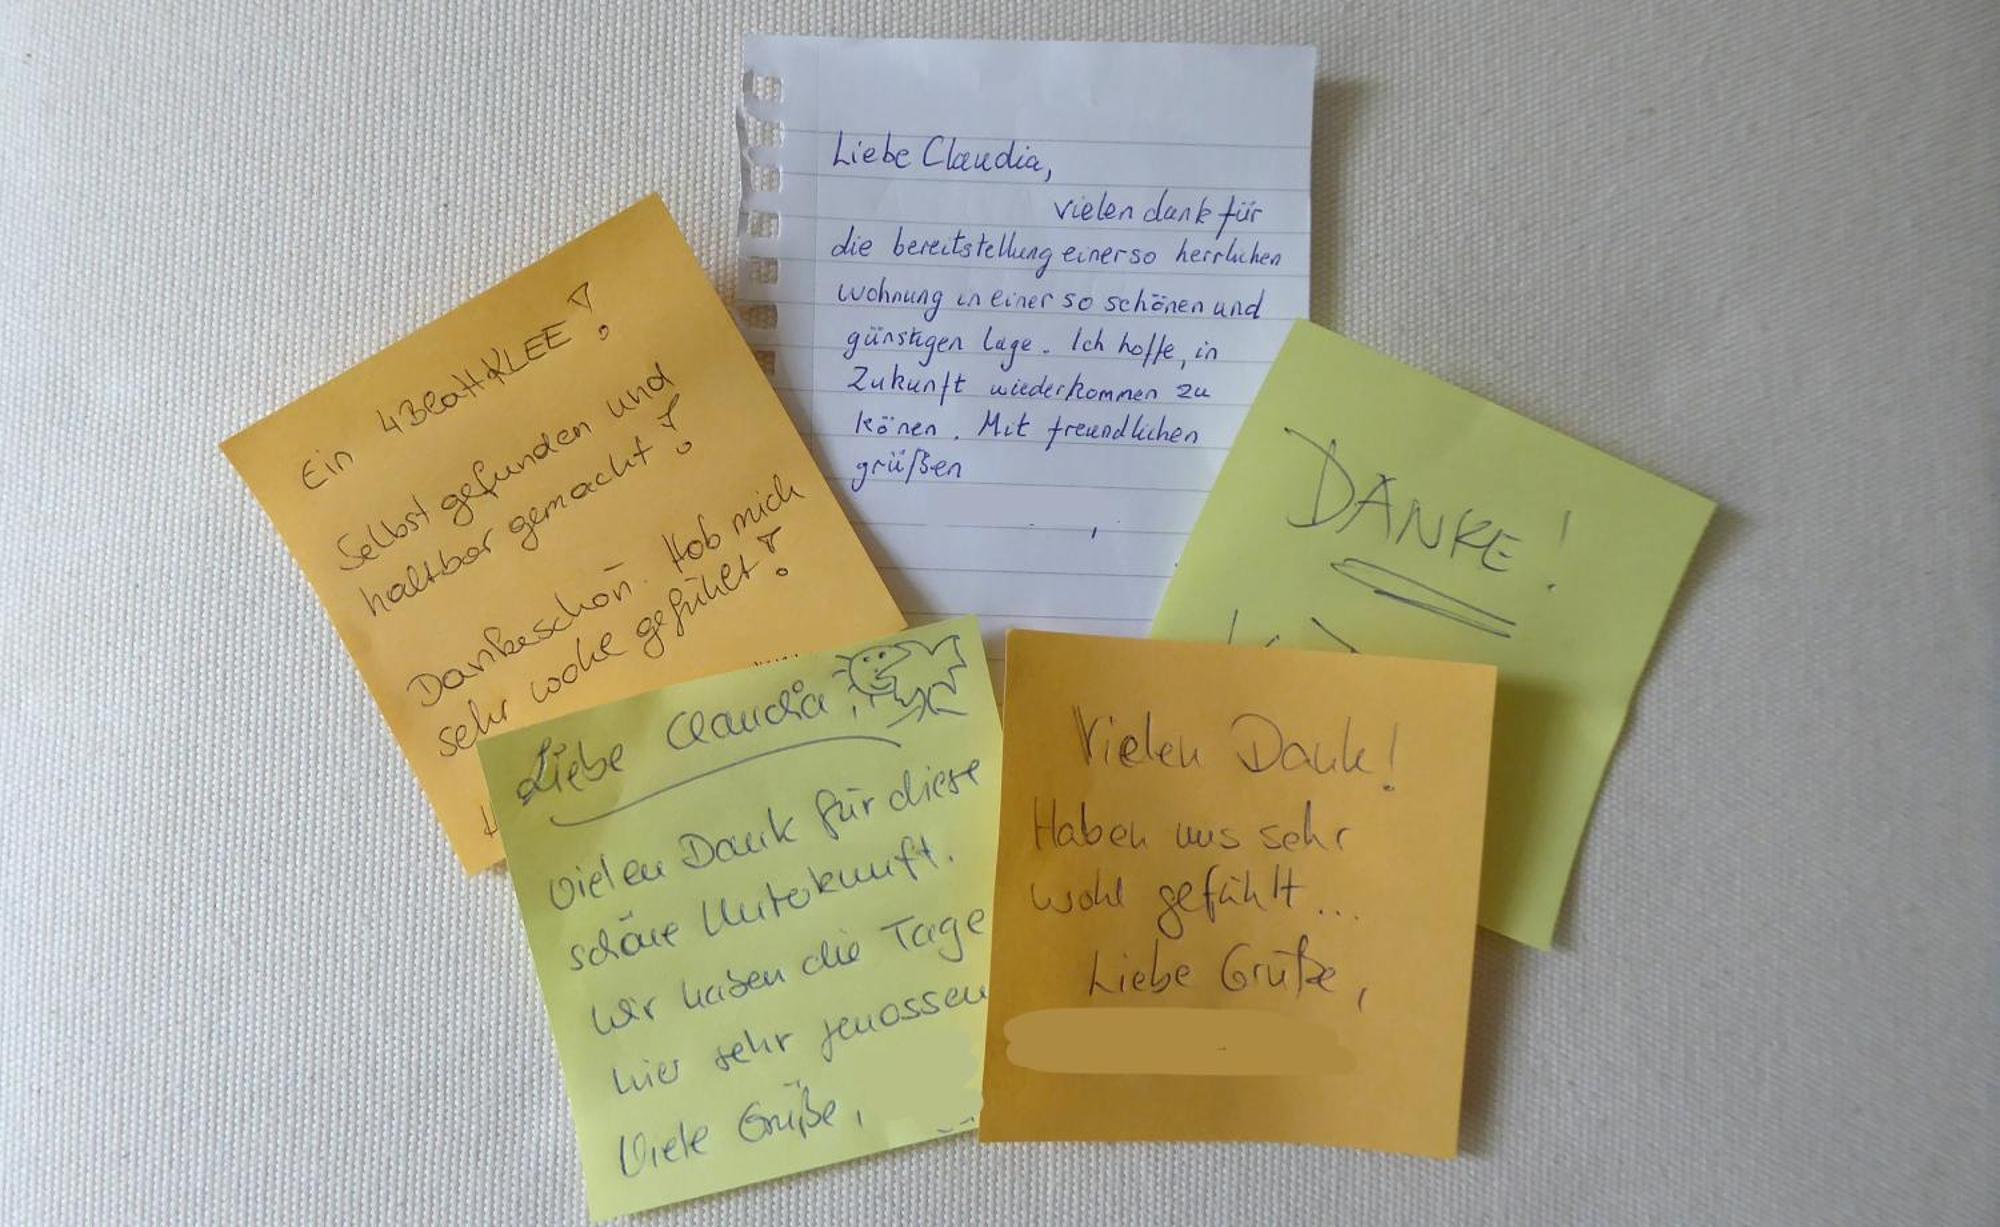 Liebe Claudia,
vielen dank für
die bereitstellung einer so herrlichen
wohnung in einer so schönen und
günstigen lage. Ich hoffe, in
Zukunft wiederkommen zu
könen. Mit freundlichen
grüßen
Ein 4BlattKLEE!
Selbst gefunden und
haltbar gemacht!
Dankeschön. Hab mich
sehr wohl gefühlt!
DANKE!
Liebe Claudia,
vielen Dank für diese
schöne Unterkunft.
Wir haben die Tage
hier sehr genossen
Viele Grüße,
Vielen Dank!
Haben uns sehr
wohl gefühlt...
Liebe Grüße,